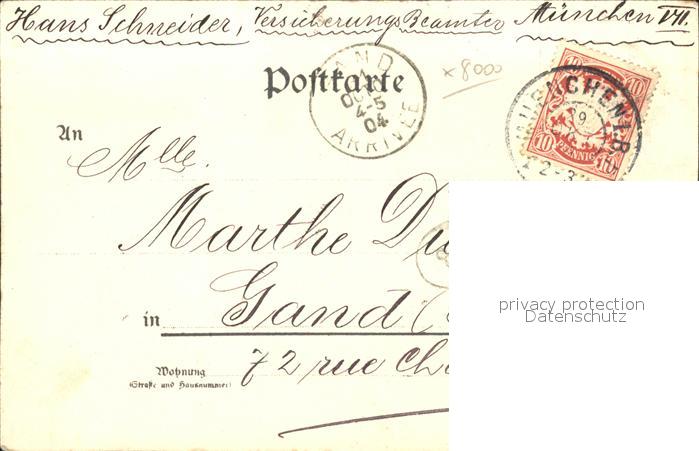 Hans Schneider, Versicherungs Beamter München VII.
Postkarte
x 8000
AND
4-5
04
ARRIVÉE
MUENCHEN I.B.P.
9
2-3
10 10
10 PFENNIG 10
An
Mlle.
Marthe Du
in Gand (
Wohnung
(Straße und Hausnummer)
72 rue Ch
privacy protection
Datenschutz